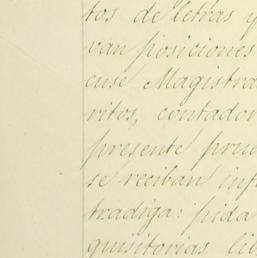 tos de letras y
van posiciones
cuse Magistra
ritos, contador
presente prue
se reciban inf
tradiga: pida
quisitorias lib